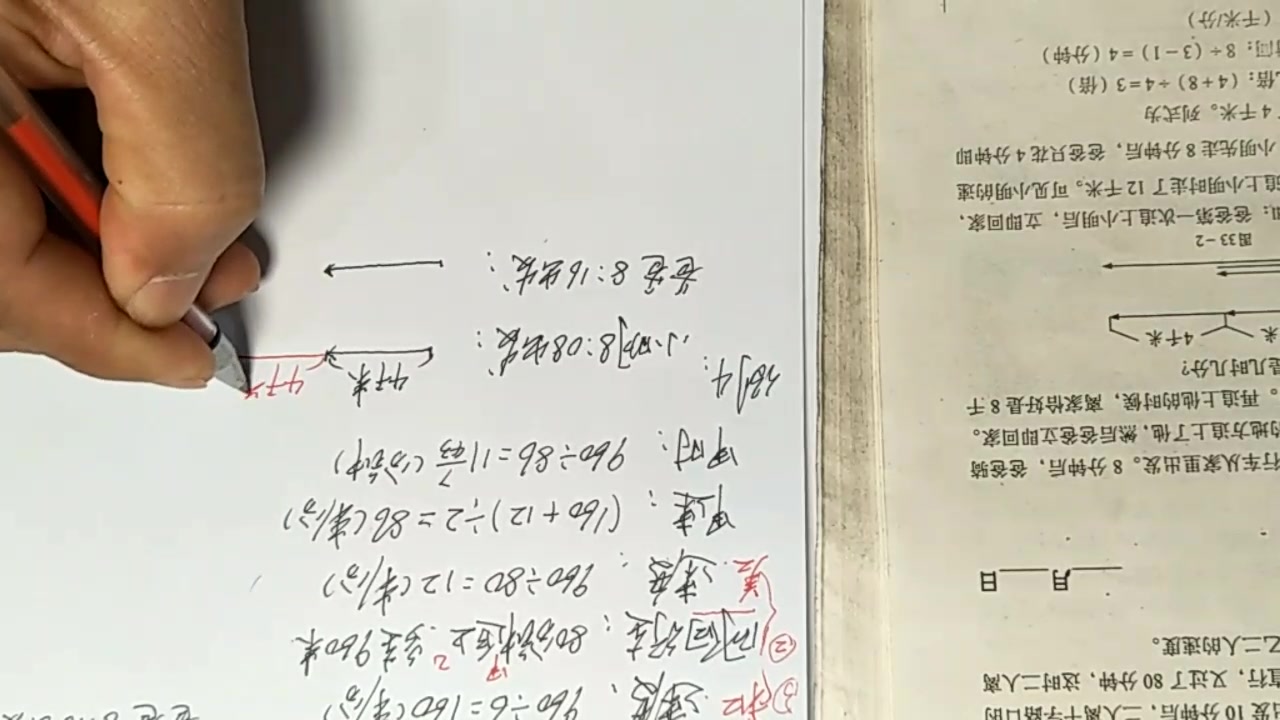 ①和 速度：960÷6=160(米/分)
②同向行走：80分钟甲比乙多走960米
差 速度：960÷80=12(米/分)
甲速：(160+12)÷2=86(米/分)
甲时：960÷86=11 7/43(分钟)
例4：
小明8:08出发：
4千米
4千米
爸爸8:16出发：
度 10 分钟后，二人离十字路口的
直行，又过了 80 分钟，这时二人离
乙二人的速度。
____月____日
行车从家里出发。8 分钟后，爸爸骑
的地方追上了他，然后爸爸立即回家。
。再追上他的时候，离家恰好是 8 千
是几时几分？
米
4千米
图 33-2
：爸爸第一次追上小明后，立即回家，
追上小明时走了 12 千米。可见小明的速
小明先走 8 分钟后，爸爸只花 4 分钟即
4 千米。列式为
倍：(4+8)÷4=3(倍)
时间：8÷(3-1)=4(分钟)
(千米/分)